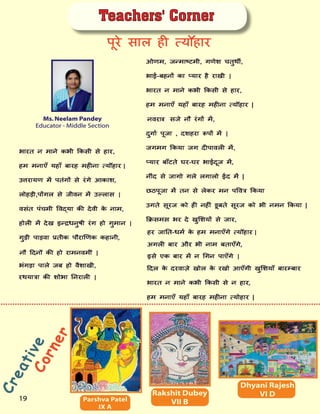 Teachers' Corner
पूरे साल ही त्यौहार
Ms. Neelam Pandey
Educator - Middle Section
भारत न माने कभी किसी से हार,
हम मनाएँ यहाँ बारह महीना त्यौहार |
उत्तरायण में पतंगों से रंगे आकाश,
लोहड़ी,पोंगल से जीवन में उल्लास |
वसंत पंचमी विद्या की देवी के नाम,
होली में देख इन्द्रधनुषी रंग हो गुमान |
गुड़ी पाड़वा प्रतीक पौराणिक कहानी,
नौ दिनों की हो रामनवमीं |
भंगड़ा पाले जब हो वैशाखी,
रथयात्रा की शोभा निराली |
ओणम, जन्माष्टमी, गणेश चतुर्थी,
भाई-बहनों का प्यार है राखी |
भारत न माने कभी किसी से हार,
हम मनाएँ यहाँ बारह महीना त्यौहार |
नवरात्र सजे नौ रंगों में,
दुर्गा पूजा , दशहरा रूपों में |
जगमग किया जग दीपावली में,
प्यार बाँटते घर-घर भाईदूज में,
नींद से जागो गले लगालो ईद में |
छठपूजा में तन से लेकर मन पवित्र किया
उगते सूरज को ही नहीं डूबते सूरज को भी नमन किया |
क्रिसमस भर दे खुशियों से जार,
हर जाति-धर्म के हम मनाएँगे त्यौहार |
अगली बार और भी नाम बताएँगे,
इसे एक बार में न गिन पाएँगे |
दिल के दरवाज़े खोल के रखो आएँगी खुशियाँ बारम्बार
भारत न माने कभी किसी से न हार,
हम मनाएँ यहाँ बारह महीना त्योहार |
Creative Corner
Parshva Patel
IX A
Rakshit Dubey
VII B
Dhyani Rajesh
VI D
19